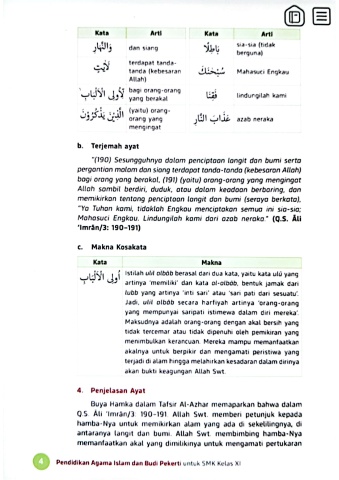 Kata Arti Kata Arti
وَالنَّهَارِ dan siang بَاطِلًا sia-sia (tidak berguna)
لَآيٰتٍ terdapat tanda-tanda (kebesaran Allah) سُبْحٰنَكَ Mahasuci Engkau
لِّأُولِى الْأَلْبَابِ bagi orang-orang yang berakal فَقِنَا lindungilah kami
الَّذِيْنَ يَذْكُرُوْنَ (yaitu) orang-orang yang mengingat عَذَابَ النَّارِ azab neraka
b. Terjemah ayat
"(190) Sesungguhnya dalam penciptaan langit dan bumi serta
pergantian malam dan siang terdapat tanda-tanda (kebesaran Allah)
bagi orang yang berakal, (191) (yaitu) orang-orang yang mengingat
Allah sambil berdiri, duduk, atau dalam keadaan berbaring, dan
memikirkan tentang penciptaan langit dan bumi (seraya berkata),
"Ya Tuhan kami, tidaklah Engkau menciptakan semua ini sia-sia;
Mahasuci Engkau. Lindungilah kami dari azab neraka." (Q.S. Āli
'Imrān/3: 190-191)
c. Makna Kosakata
Kata Makna
أُولِى الْأَلْبَابِ Istilah ulil albāb berasal dari dua kata, yaitu kata ulū yang
artinya 'memiliki' dan kata al-albāb, bentuk jamak dari
lubb yang artinya 'inti sari' atau 'sari pati dari sesuatu'.
Jadi, ulil albāb secara harfiyah artinya 'orang-orang
yang mempunyai saripati istimewa dalam diri mereka'.
Maksudnya adalah orang-orang dengan akal bersih yang
tidak tercemar atau tidak dipenuhi oleh pemikiran yang
menimbulkan kerancuan. Mereka mampu memanfaatkan
akalnya untuk berpikir dan mengamati peristiwa yang
terjadi di alam hingga melahirkan kesadaran dalam dirinya
akan bukti keagungan Allah Swt.
4. Penjelasan Ayat
Buya Hamka dalam Tafsir Al-Azhar memaparkan bahwa dalam
Q.S. Āli 'Imrān/3: 190-191 Allah Swt. memberi petunjuk kepada
hamba-Nya untuk memikirkan alam yang ada di sekelilingnya, di
antaranya langit dan bumi. Allah Swt. membimbing hamba-Nya
memanfaatkan akal yang dimilikinya untuk mengamati pertukaran
4 Pendidikan Agama Islam dan Budi Pekerti untuk SMK Kelas XI